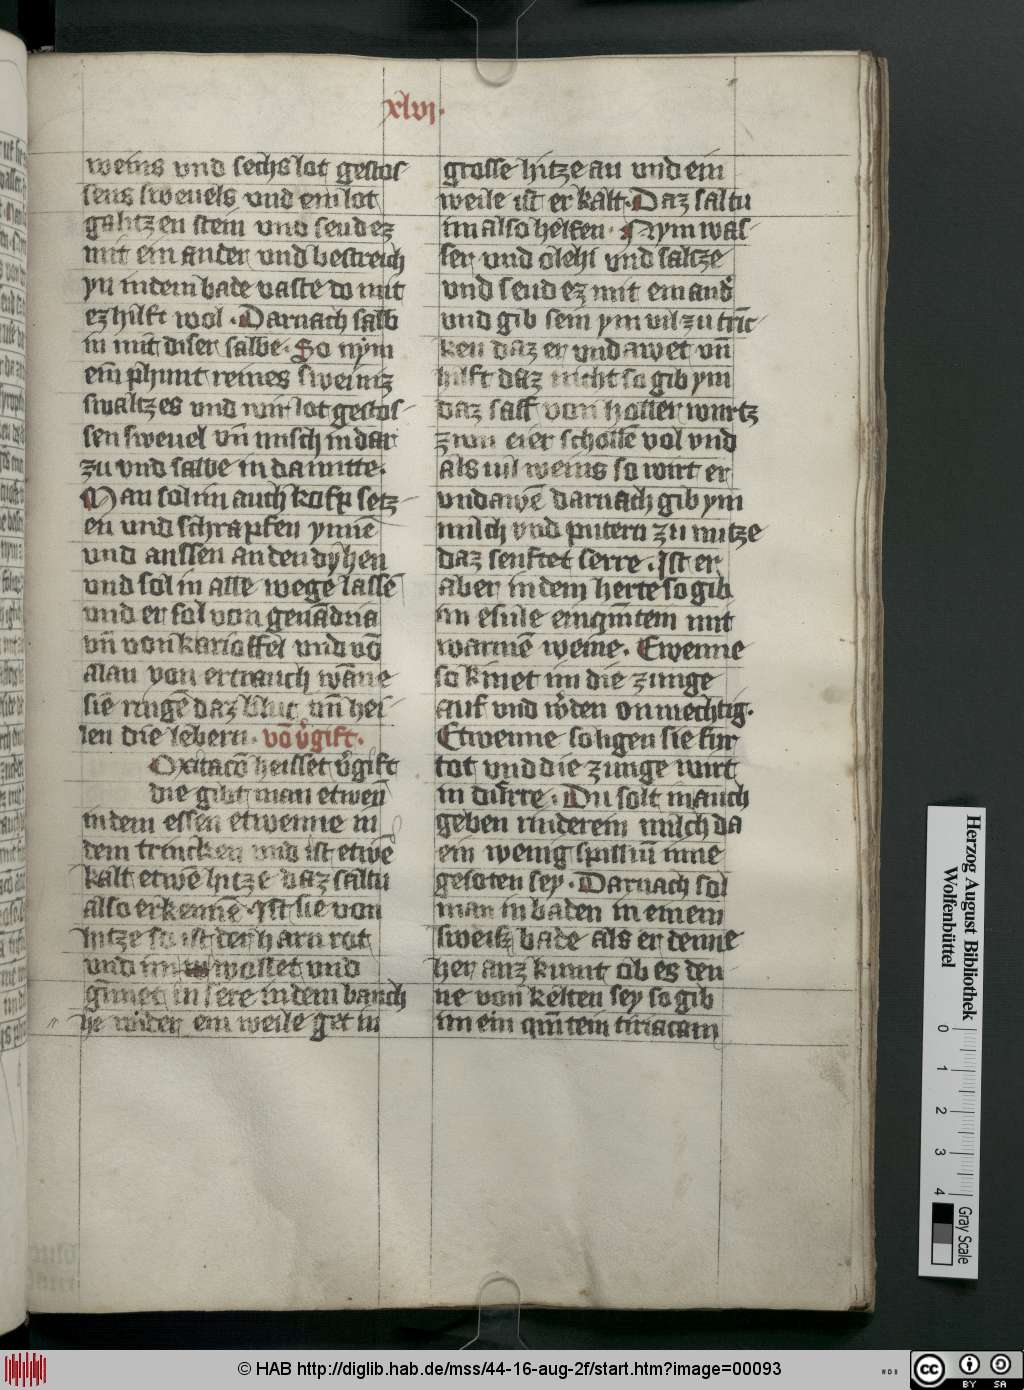 xlvi.
weins vnd sechs lot gestos-
sens sweuels vnd ein lot
galitzen stein vnd seud ez
mit ein ander vnd bestreich
yn in dem bade vaste do mit
ez hilft wol . Darnach salb
in mit diser salbe . So nym
ein phunt reines sweintz
smaltzes vnd vir lot gestos-
sen sweuel vn̄ misch in dar
zu vnd salbe in da mitte .
Man sol im auch kopf setz-
en vnd schrapfen ynnē
vnd aussen an den dyhen
vnd sol in alle wege lassē
vnd er sol von
vn̄ von karioffel vnd vō
alau von ertrauch wāne
sie ringē daz blut vn̄ hei-
len die lebern . vō v̓gift .
Oxitacō heisset v̓gift
die gibt man etwen̄
in dem essen etwenne in
dem trincken vnd ist etwē
kalt etwē hitze daz saltu
also erkennē . Ist sie von
hitze so ist der harn rot
vnd im wallet vnd
in sere in dem bauch
he nider ein weile get in
grosse hitze an vnd ein
weile ist er kalt . Daz saltu
im also helfen . Nym was-
ser vnd olehi vnd saltze
vnd seud ez mit ein and̓
vnd gib sein ym vil zu trīc-
ken daz er vndawet vn̄
hilft daz nicht so gib ym
daz saff von holler wurtz
zwu eier scholle vol vnd
als vil weins so wirt er
vndawē darnach gib ym
milch vnd putern zu nutze
daz senftet serre . Ist er
aber in dem herte so gib
im esule ein qm̄tein mit
warmē weine . Etwenne
so kinet im die zunge
auf vnd w̓den onmechtig .
Etwenne so ligen sie fur
tot vnd die zunge wirt
in durre . Du solt in auch
geben rinderein milch da
ein wenig inne
gesoten sey . Darnach sol
man in baden in einem
sweisz bade als er denne
her auz kumt ob es den-
ne von kelten sey so gib
im ein qm̄tein tiriacam
Herzog August Bibliothek
Wolfenbüttel
0 1 2 3 4
Gray Scale
© HAB http://diglib.hab.de/mss/44-16-aug-2f/start.htm?image=00093
cc BY SA